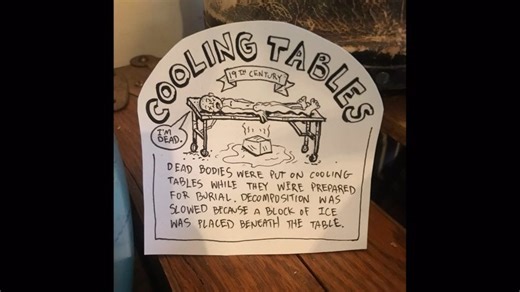 COOLING TABLES
19TH CENTURY
I'M
DEAD.
DEAD BODIES WERE PUT ON COOLING
TABLES WHILE THEY WERE PREPARED
FOR BURIAL. DECOMPOSITION WAS
SLOWED BECAUSE A BLOCK OF ICE
WAS PLACED BENEATH THE TABLE.